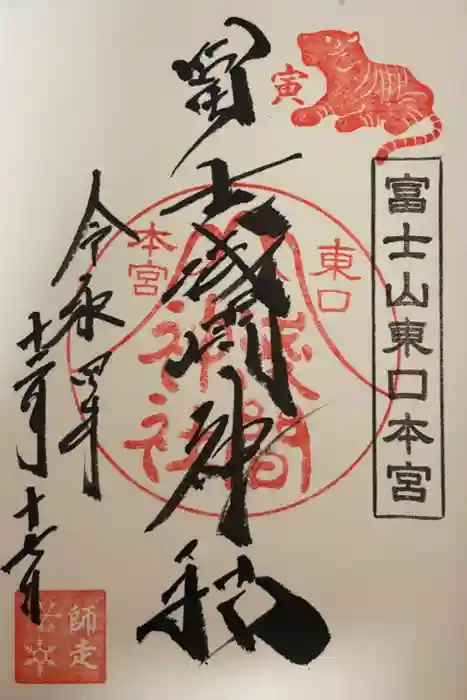 寅
富士山東口本宮
冨士浅間神社
東口
本宮
浅間
神社
令和四年
十二月十七日
師走